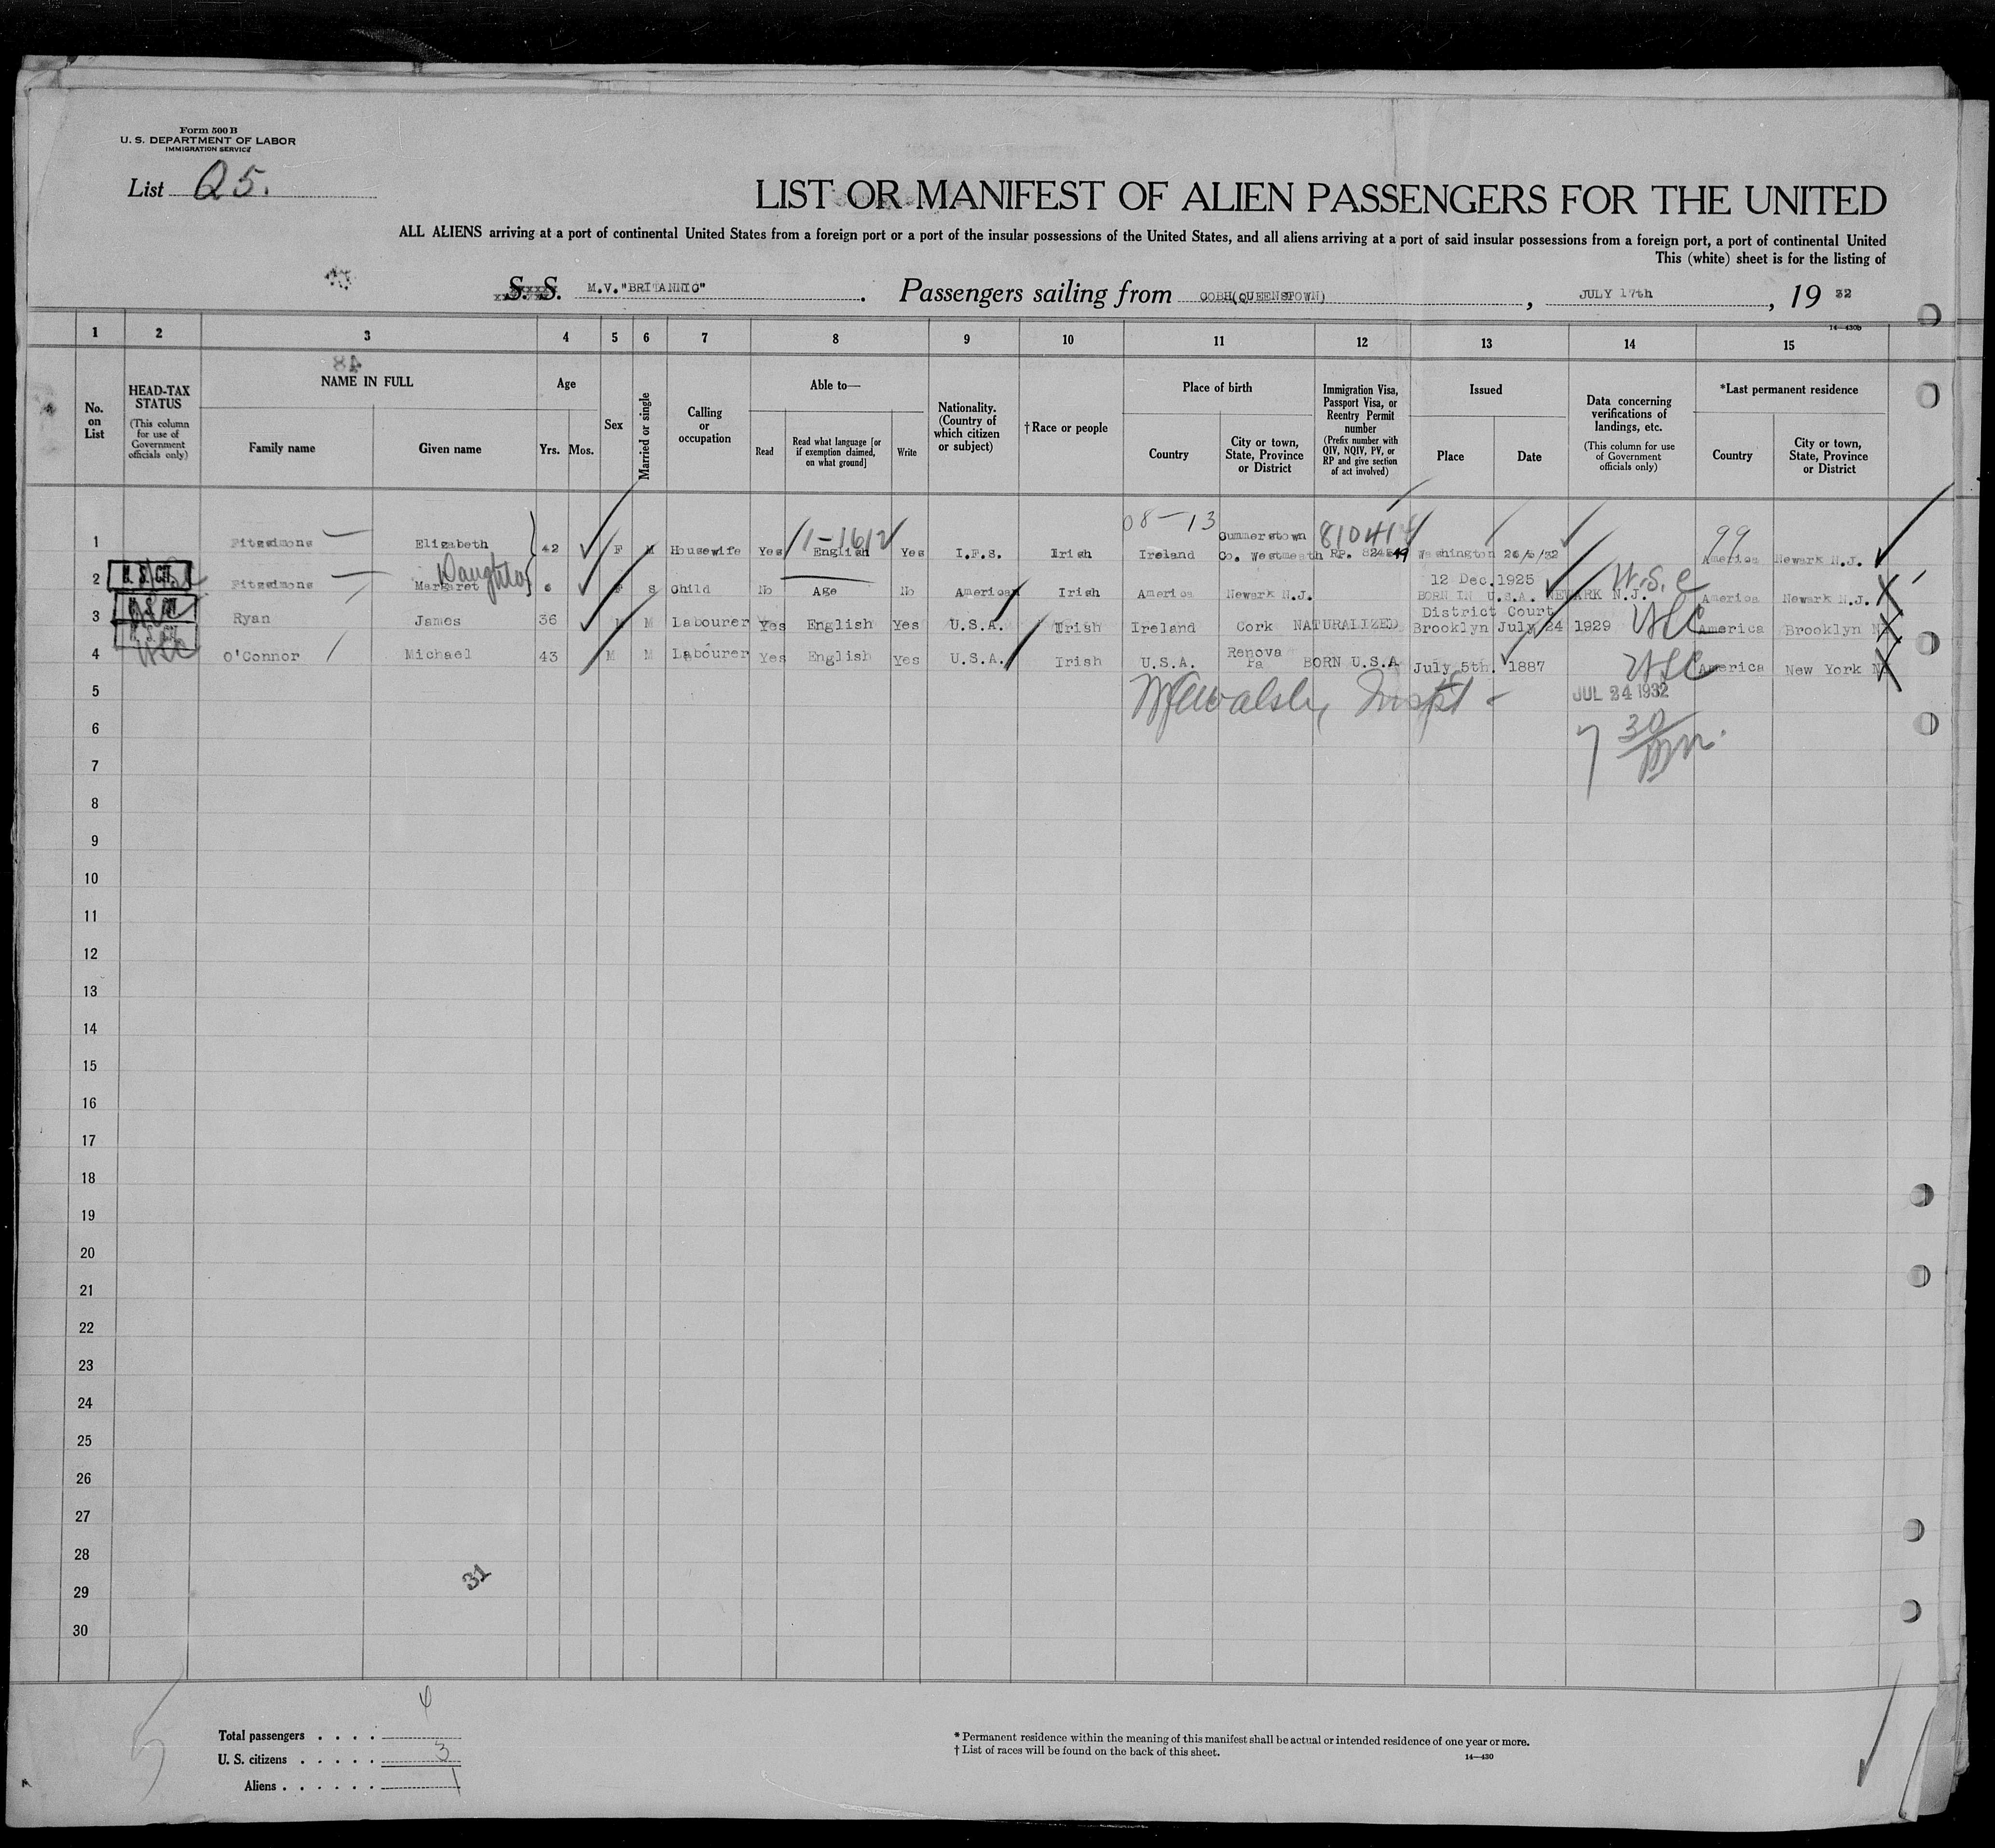 Form 500 B
U. S. DEPARTMENT OF LABOR
IMMIGRATION SERVICE
List Q5.
LIST OR MANIFEST OF ALIEN PASSENGERS FOR THE UNITED
ALL ALIENS arriving at a port of continental United States from a foreign port or a port of the insular possessions of the United States, and all aliens arriving at a port of said insular possessions from a foreign port, a port of continental United
This (white) sheet is for the listing of
S. S. M.V."BRITANNIC". Passengers sailing from COBH(QUEENSTOWN), JULY 17th, 19 32
14—430b
1 2 3 4 5 6 7 8 9 10 11 12 13 14 15
No. on List
HEAD-TAX STATUS
(This column for use of Government officials only)
48
NAME IN FULL
Family name
Given name
Age
Yrs. Mos.
Sex
Married or single
Calling or occupation
Able to—
Read
Read what language [or if exemption claimed, on what ground]
Write
Nationality. (Country of which citizen or subject)
†Race or people
Place of birth
Country
City or town, State, Province or District
Immigration Visa, Passport Visa, or Reentry Permit number
(Prefix number with QIV, NQIV, PV, or RP and give section of act involved)
Issued
Place
Date
Data concerning verifications of landings, etc.
(This column for use of Government officials only)
*Last permanent residence
Country
City or town, State, Province or District
08-13 99
1-1612
1 Fitzsimons Elizabeth 42 F M Housewife Yes English Yes I.F.S. Irish Ireland Summerstown Co. Westmeath RP. Washington 26/5/32 America Newark N.J.
Daughter
2 Fitzsimons Margaret 6 F S Child No Age No American Irish America Newark N.J. 12 Dec.1925 BORN IN U.S.A. NEWARK N.J. U.S.C America Newark N.J.
3 Ryan James 36 M M Labourer Yes English Yes U.S.A. Irish Ireland Cork NATURALIZED District Court Brooklyn July 24 1929 USC America Brooklyn
4 O'Connor Michael 43 M M Labourer Yes English Yes U.S.A. Irish U.S.A. Renova Pa BORN U.S.A July 5th. 1887 USC America New York
5 Walsh, Inspt - JUL 24 1932
6 7 30
7
8
9
10
11
12
13
14
15
16
17
18
19
20
21
22
23
24
25
26
27
28
29
30
31
Total passengers . . . . 4
U. S. citizens . . . . . 3
Aliens . . . . . . 1
* Permanent residence within the meaning of this manifest shall be actual or intended residence of one year or more.
† List of races will be found on the back of this sheet.
14—430